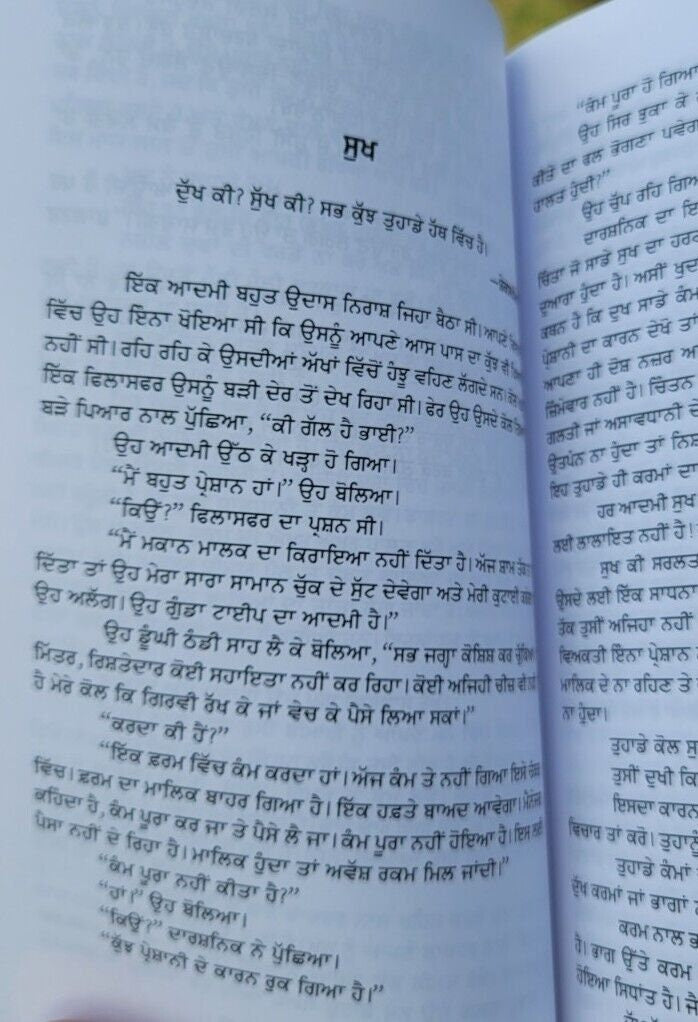 ਸੁਖ
ਦੁੱਖ ਕੀ? ਸੁੱਖ ਕੀ? ਸਭ ਕੁੱਝ ਤੁਹਾਡੇ ਹੱਥ ਵਿੱਚ ਹੈ।
ਇੱਕ ਆਦਮੀ ਬਹੁਤ ਉਦਾਸ ਨਿਰਾਸ਼ ਜਿਹਾ ਬੈਠਾ ਸੀ। ਆਪਣੇ
ਵਿੱਚ ਉਹ ਇਨਾ ਖੋਇਆ ਸੀ ਕਿ ਉਸਨੂੰ ਆਪਣੇ ਆਸ ਪਾਸ ਦਾ ਕੁੱਝ ਵੀ
ਨਹੀਂ ਸੀ। ਰਹਿ ਰਹਿ ਕੇ ਉਸਦੀਆਂ ਅੱਖਾਂ ਵਿੱਚੋਂ ਹੰਝੂ ਵਹਿਣ ਲੱਗਦੇ ਸਨ।
ਇੱਕ ਫਿਲਾਸਫਰ ਉਸਨੂੰ ਬੜੀ ਦੇਰ ਤੋਂ ਦੇਖ ਰਿਹਾ ਸੀ। ਫੇਰ ਉਹ ਉਸਦੇ ਕੋਲ
ਬੜੇ ਪਿਆਰ ਨਾਲ ਪੁੱਛਿਆ, “ਕੀ ਗੱਲ ਹੈ ਭਾਈ?”
ਉਹ ਆਦਮੀ ਉੱਠ ਕੇ ਖੜ੍ਹਾ ਹੋ ਗਿਆ।
“ਮੈਂ ਬਹੁਤ ਪ੍ਰੇਸ਼ਾਨ ਹਾਂ।” ਉਹ ਬੋਲਿਆ।
“ਕਿਉਂ?” ਫਿਲਾਸਫਰ ਦਾ ਪ੍ਰਸ਼ਨ ਸੀ।
“ਮੈਂ ਮਕਾਨ ਮਾਲਕ ਦਾ ਕਿਰਾਇਆ ਨਹੀਂ ਦਿੱਤਾ ਹੈ। ਅੱਜ ਸ਼ਾਮ ਤੱਕ
ਦਿੱਤਾ ਤਾਂ ਉਹ ਮੇਰਾ ਸਾਰਾ ਸਾਮਾਨ ਚੁੱਕ ਦੇ ਸੁੱਟ ਦੇਵੇਗਾ ਅਤੇ ਮੇਰੀ ਕੁਟਾਈ
ਉਹ ਅਲੱਗ। ਉਹ ਗੁੰਡਾ ਟਾਈਪ ਦਾ ਆਦਮੀ ਹੈ।”
ਉਹ ਡੂੰਘੀ ਠੰਡੀ ਸਾਹ ਲੈ ਕੇ ਬੋਲਿਆ, “ਸਭ ਜਗ੍ਹਾ ਕੋਸ਼ਿਸ਼ ਕਰ
ਮਿੱਤਰ, ਰਿਸ਼ਤੇਦਾਰ ਕੋਈ ਸਹਾਇਤਾ ਨਹੀਂ ਕਰ ਰਿਹਾ। ਕੋਈ ਅਜਿਹੀ ਚੀਜ਼ ਵੀ
ਹੈ ਮੇਰੇ ਕੋਲ ਕਿ ਗਿਰਵੀ ਰੱਖ ਕੇ ਜਾਂ ਵੇਚ ਕੇ ਪੈਸੇ ਲਿਆ ਸਕਾਂ।”
“ਕਰਦਾ ਕੀ ਹੈਂ?”
“ਇੱਕ ਫ਼ਰਮ ਵਿੱਚ ਕੰਮ ਕਰਦਾ ਹਾਂ। ਅੱਜ ਕੰਮ ਤੇ ਨਹੀਂ ਗਿਆ ਇਸੇ
ਵਿੱਚ। ਫ਼ਰਮ ਦਾ ਮਾਲਿਕ ਬਾਹਰ ਗਿਆ ਹੈ। ਇੱਕ ਹਫ਼ਤੇ ਬਾਅਦ ਆਵੇਗਾ। ਮੈਨੇਜਰ
ਕਹਿਦਾ ਹੈ, ਕੰਮ ਪੂਰਾ ਕਰ ਜਾ ਤੇ ਪੈਸੇ ਲੈ ਜਾ। ਕੰਮ ਪੂਰਾ ਨਹੀਂ ਹੋਇਆ ਹੈ। ਇਸ ਲਈ
ਪੈਸਾ ਨਹੀਂ ਦੇ ਰਿਹਾ ਹੈ। ਮਾਲਿਕ ਹੁੰਦਾ ਤਾਂ ਅਵੱਸ਼ ਰਕਮ ਮਿਲ ਜਾਂਦੀ।”
“ਕੰਮ ਪੂਰਾ ਨਹੀਂ ਕੀਤਾ ਹੈ?”
“ਹਾਂ।” ਉਹ ਬੋਲਿਆ।
“ਕਿਉਂ?” ਦਾਰਸ਼ਨਿਕ ਨੇ ਪੁੱਛਿਆ।
“ਕੁੱਝ ਪ੍ਰੇਸ਼ਾਨੀ ਦੇ ਕਾਰਨ ਰੁਕ ਗਿਆ ਹੈ।”
“ਕੰਮ ਪੂਰਾ ਹੋ ਗਿਆ
ਉਹ ਸਿਰ ਝੁਕਾ ਕੇ
ਕੀਤੇ ਦਾ ਫਲ ਭੋਗਣਾ ਪਵੇਗਾ
ਹਾਲਤ ਹੁੰਦੀ?”
ਉਹ ਚੁੱਪ ਰਹਿ ਗਿਆ
ਦਾਰਸ਼ਨਿਕ ਦਾ
ਚਿੰਤਾ ਜੋ ਸਾਡੇ ਸੁਖ ਦਾ ਹਰਣ
ਦੁਆਰਾ ਹੁੰਦਾ ਹੈ। ਅਸੀਂ ਖੁਦ
ਕਥਨ ਹੈ ਕਿ ਦੁਖ ਸਾਡੇ ਕੰਮ
ਪ੍ਰੇਸ਼ਾਨੀ ਦਾ ਕਾਰਨ ਦੇਖੋ ਤਾਂ
ਆਪਣਾ ਹੀ ਦੋਸ਼ ਨਜ਼ਰ
ਜ਼ਿੰਮੇਵਾਰ ਨਹੀਂ ਹੈ। ਚਿੰਤਨ
ਗਲਤੀ ਜਾਂ ਅਸਾਵਧਾਨੀ
ਉਤਪੰਨ ਨਾ ਹੁੰਦਾ ਤਾਂ
ਇਹ ਤੁਹਾਡੇ ਹੀ ਕਰਮਾਂ ਦਾ
ਹਰ ਆਦਮੀ ਸੁਖ
ਲਈ ਲਾਲਾਇਤ ਨਹੀਂ ਹੈ!
ਸੁਖ ਕੀ ਸਰਲਤ
ਉਸਦੇ ਲਈ ਇੱਕ ਸਾਧਨਾ
ਤੱਕ ਤੁਸੀਂ ਅਜਿਹਾ ਨਹੀਂ
ਵਿਅਕਤੀ ਇੰਨਾ ਪ੍ਰੇਸ਼ਾਨ
ਮਾਲਿਕ ਦੇ ਨਾ ਰਹਿਣ ਤੇ
ਨਾ ਹੁੰਦਾ।
ਤੁਹਾਡੇ ਕੋਲ
ਤੁਸੀਂ ਦੁਖੀ ਕਿ
ਇਸਦਾ ਕਾਰਨ
ਵਿਚਾਰ ਤਾਂ ਕਰੋ।
ਤੁਹਾਡੇ ਕੰਮਾਂ
ਦੁੱਖ ਕਰਮਾਂ ਜਾਂ ਭਾਗਾਂ
ਕਰਮ ਨਾਲ
ਹੈ। ਭਾਗ ਉੱਤੇ ਕਰਮ
ਹੋਇਆ ਸਿਧਾਂਤ ਹੈ।